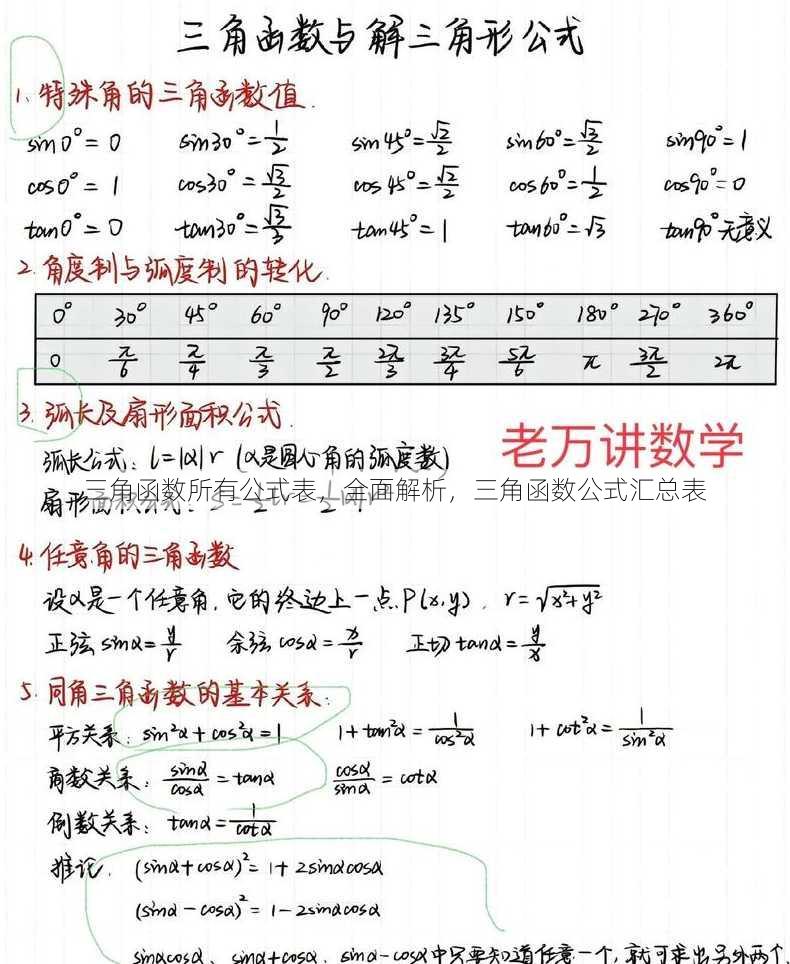 三角函数与解三角形公式
1、特殊角的三角函数值.
sin0°=0 sin30°=1/2 sin45°=√2/2 sin60°=√3/2 sin90°=1
cos0°=1 cos30°=√3/2 cos45°=√2/2 cos60°=1/2 cos90°=0
tan0°=0 tan30°=√3/3 tan45°=1 tan60°=√3 tan90°无意义
2.角度制与弧度制的转化.
0° 30° 45° 60° 90° 120° 135° 150° 180° 270° 360°
0 π/6 π/4 π/3 π/2 2π/3 3π/4 5π/6 π 3π/2 2π
3.弧长及扇形面积公式.
老万讲数学
弧长公式：l=|α|r (α是圆心角的弧度数)
三角函数所有公式表，全面解析，三角函数公式汇总表
扇形
4.任意角的三角函数
设α是一个任意角，它的终边上一点P(x,y)，r=√x²+y²
正弦sinα=y/r 余弦cosα=x/r 正切tanα=y/x
5.同角三角函数的基本关系：
平方关系：sin²α+cos²α=1 1+tan²α=1/cos²α 1+cot²α=1/sin²α
商数关系：sinα/cosα=tanα cosα/sinα=cotα
倒数关系：tanα=1/cotα
推论. (sinα+cosα)²=1+2sinαcosα
(sinα-cosα)²=1-2sinαcosα
sinαcosα、sinα+cosα、sinα-cosα中只要知道任意一个,就可求出另外两个.